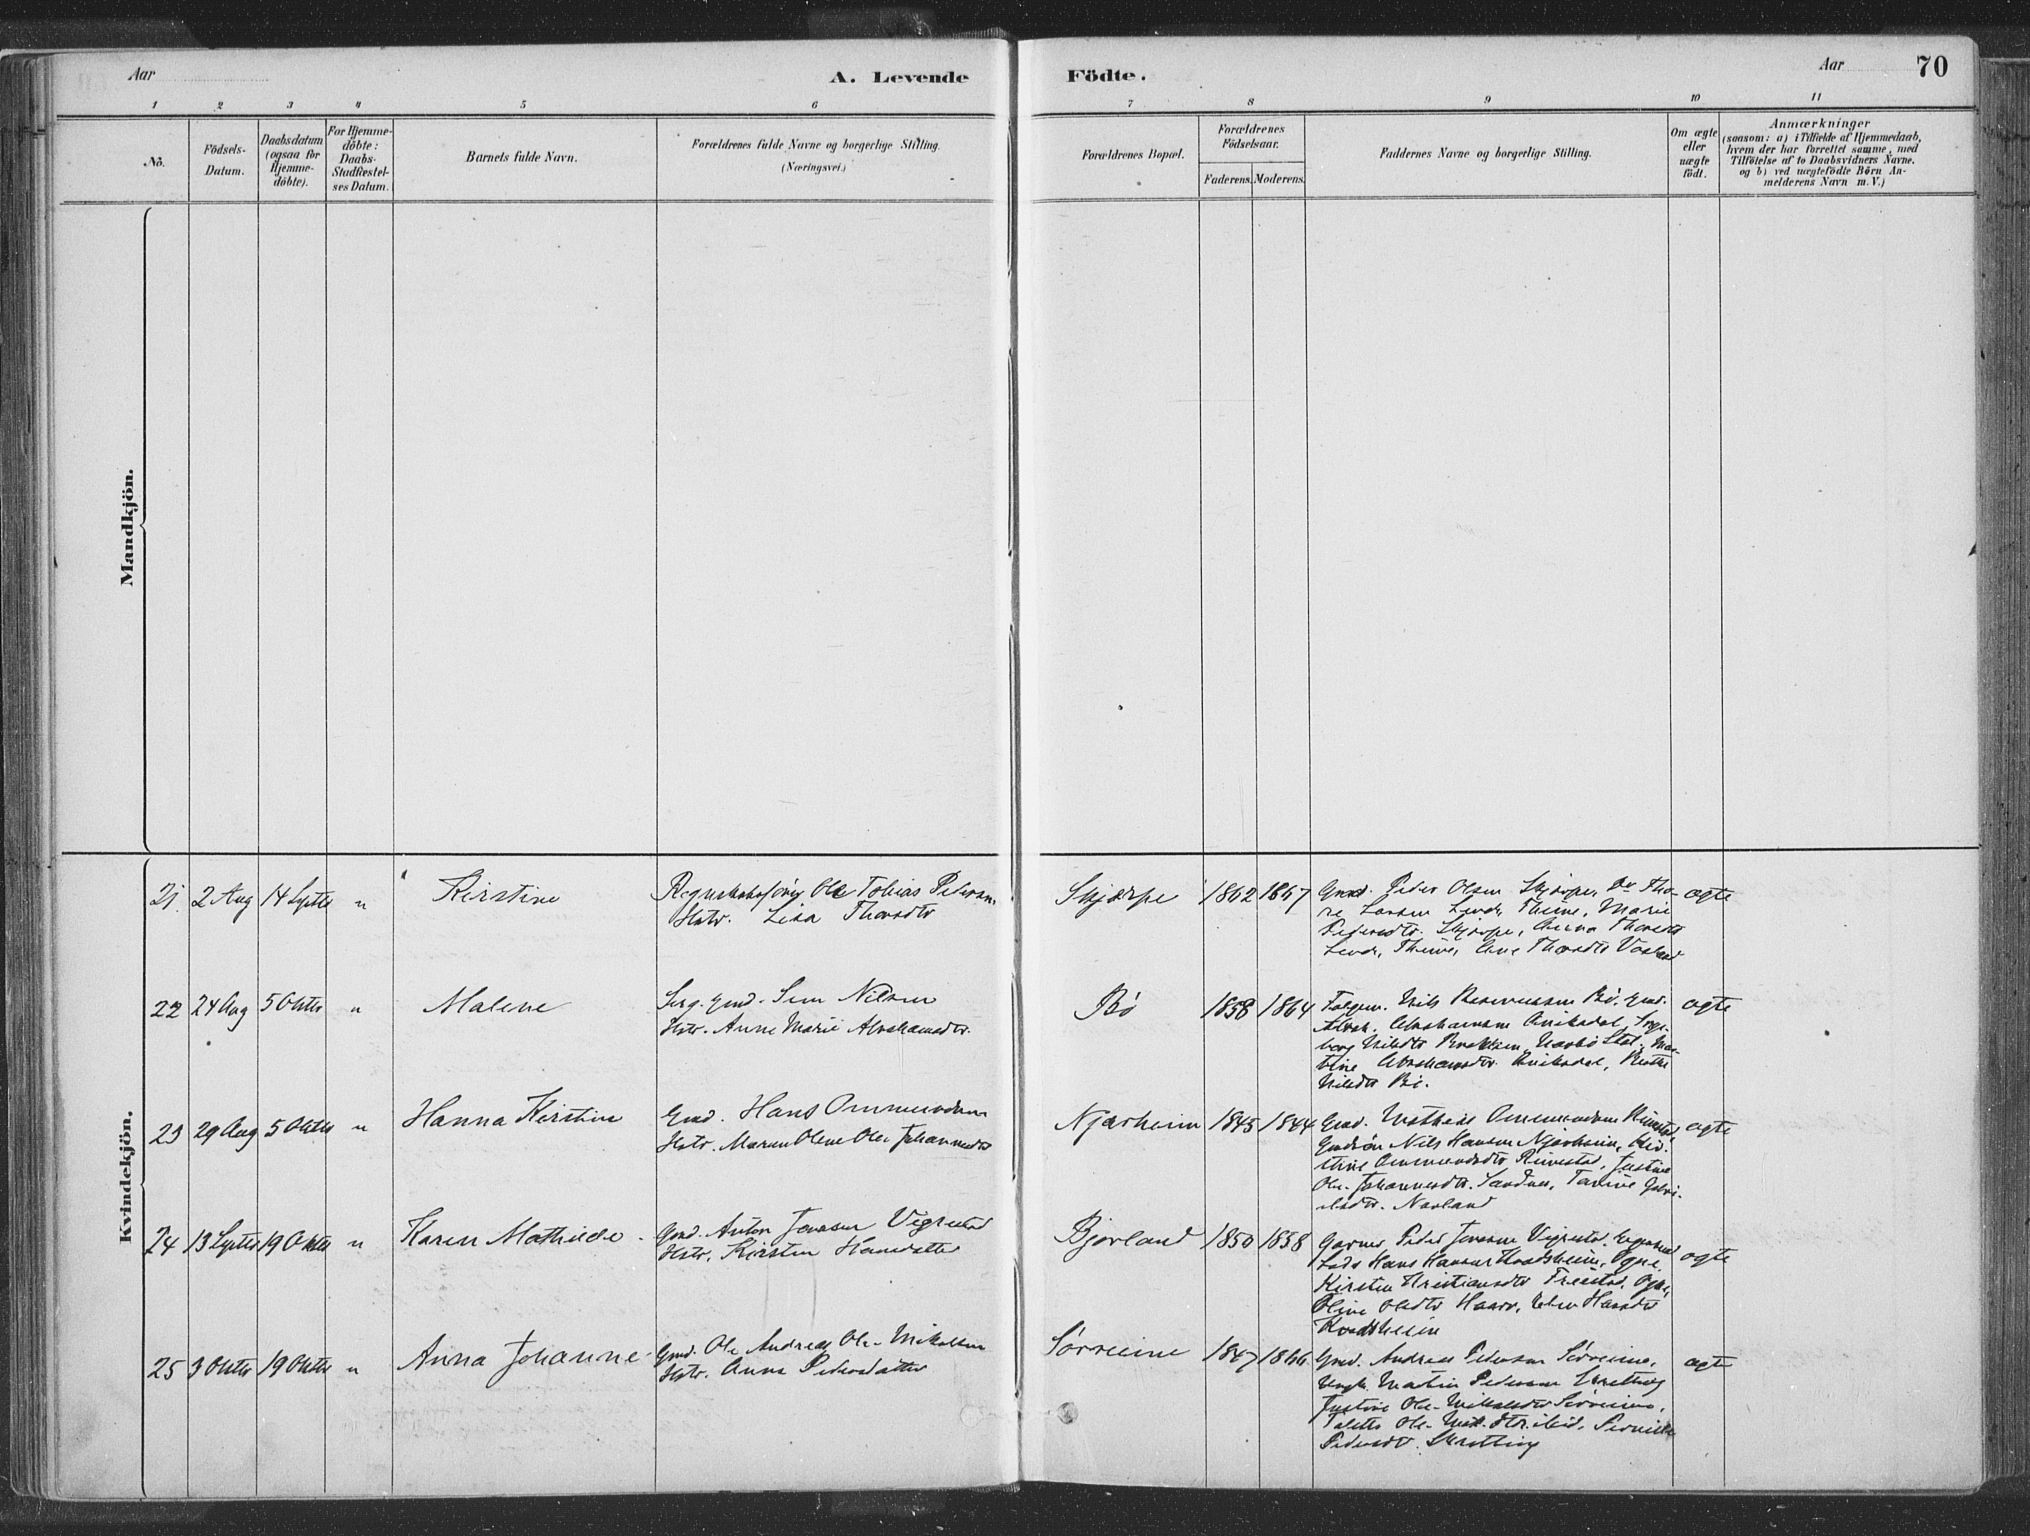 Aar
A. Levende
Födte.
Aar
70
1 2 3 4 5 6 7 8 9 10 11
No.
Födsels-
Datum.
Daabsdatum
(ogsaa for
Hjemme-
döbte).
For Hjemme-
döbte:
Daabs-
Stadfæstel-
ses Datum.
Barnets fulde Navn.
Forældrenes fulde Navne og borgerlige Stilling.
(Næringsvei.)
Forældrenes Bopæl.
Forældrenes
Födselsaar.
Faderens. Moderens.
Faddernes Navne og borgerlige Stilling.
Om ægte
eller
uægte
födt.
Anmærkninger
(saasom: a) i Tilfælde af Hjemmedaab,
hvem der har forrettet samme, med
Tilföielse af to Daabsvidners Navne.
og b) ved uægtefödte Börn An-
melderens Navn m. V.)
Mandkjön.
Kvindekjön.
21. 2 Aug 14 Septbr " Kirstine
Ole Tobias Petersen
Hstr. Lisa Thoresdtr
Skjærpe 1862 1867
Gmd. Peder Olsen Skjærpe, Do Tho-
re Larsen Thime, Marie
Pedersdtr. Skjærpe, Anna Thoresdtr
Thime, Ane Thoresdtr
ægte
22 24 Aug 5 Oktbr " Malene
Gmd. Sem Nilsen
Hstr. Anne Marie Abrahamsdtr.
Bø 1858 1864
Nils Rasmussen Bø, Gmd.
Abrah. Abrahamsen Aniksdal,
Abrahamsdtr. Aniksdal,
Nilsdtr Bø.
ægte
23 29 Aug 5 Oktbr " Hanna Kirstine
Gmd. Hans Ommundsen
Hstr. Maren Olene Ole Johannesdtr
Njærheim 1845 1844
Gmd. Mathias Ommundsen Rimestad,
Nils Hansen Njærheim, Kir-
stine Ommundsdtr Rimestad, Justine
Ole-Johannesdtr. Sandnes, Tarine Gabri-
elsdtr. Nærland
ægte
24 13 Septbr 19 Oktbr " Karen Mathilde
Gmd. Anton Jonassen Vigrestad
Hstr. Kirsten Hansdatter
Bjorland 1850 1858
Garver Peder Jonassen Vigrestad,
Hans Hansen Kvadsheim, Ogne,
Kirsten Kristiansdtr Ogne,
Oline Olsdtr Haarr, Hansdtr
Kvadsheim
ægte
25 3 Oktbr 19 Oktbr " Anna Johanne
Gmd. Ole Andreas Ole-Mikalsen
Hstr. Anna Pedersdatter
Sørreime 1847 1866
Gmd. Andreas Pedersen Sørreime,
Ungk. Martin Pedersen Skretting
Justine Ole-Mikalsdtr Sørreime,
Ole-Mik.dtr. ibid,
Pedersdtr. Skretting
ægte